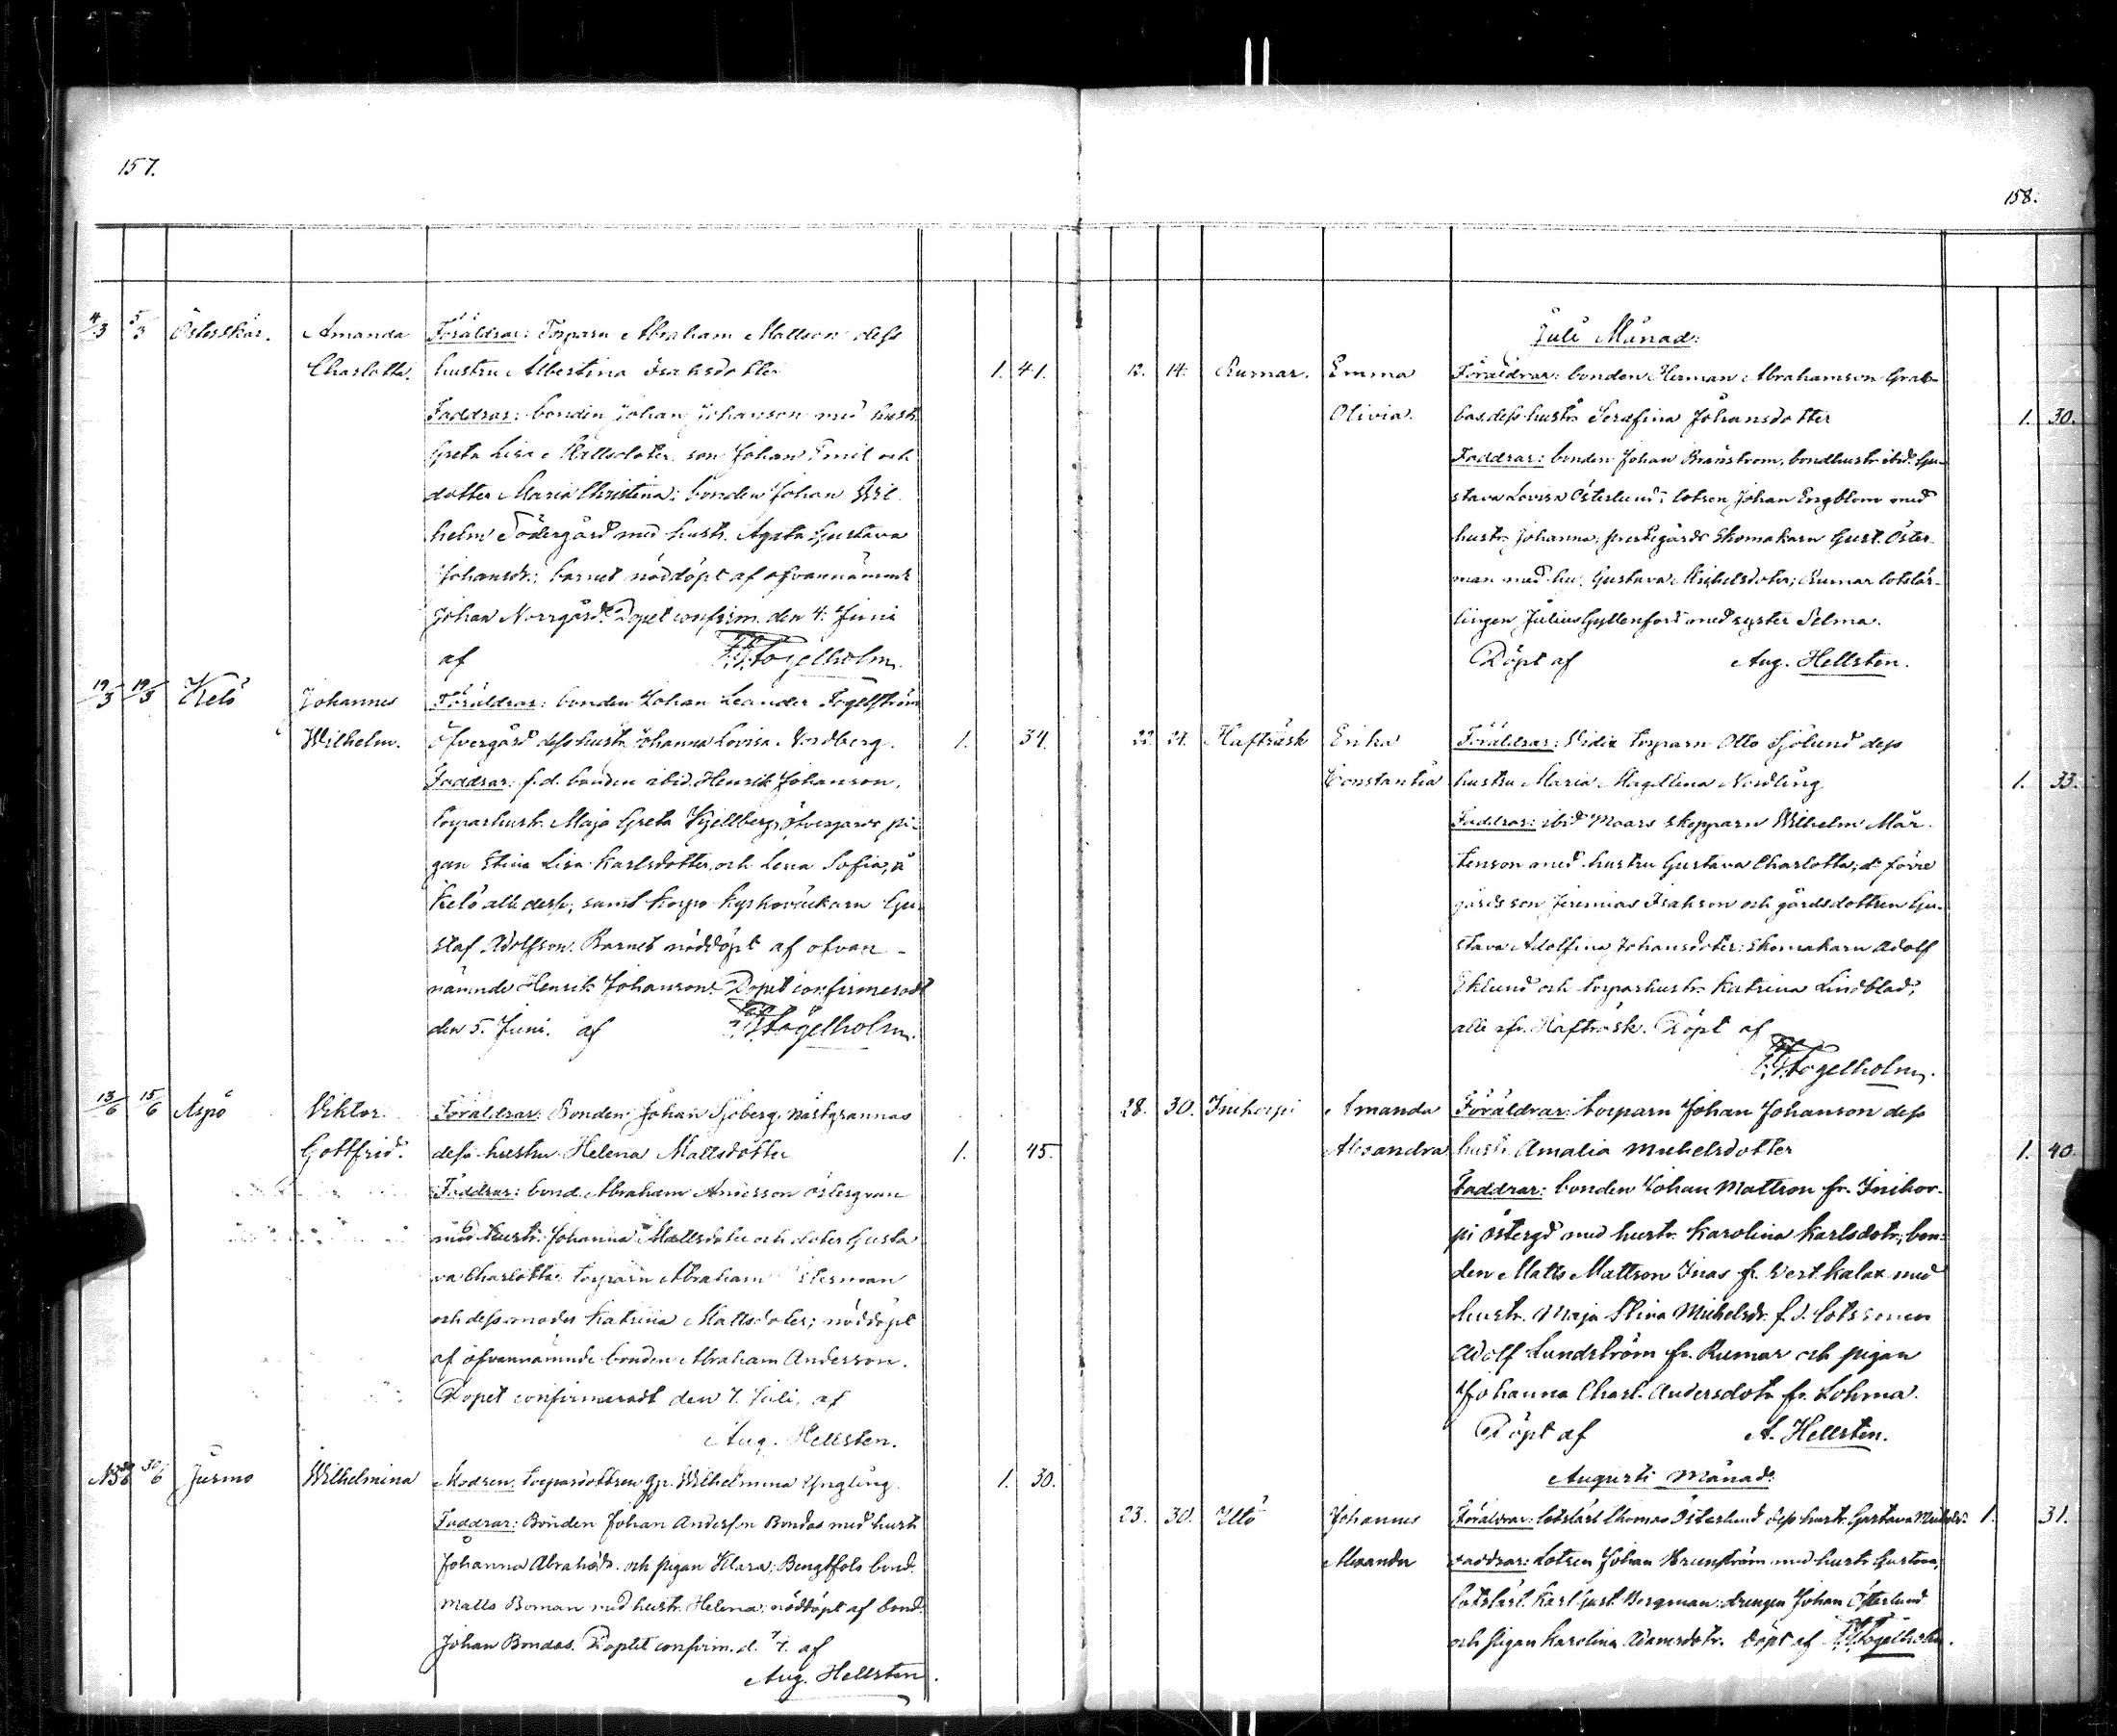 157.
4/3 5/3 Österskär. Amanda Föräldrar: Torparn Abraham Mattson dess
Charlotta. hustru Albertina Isaksdotter 1. 41.
Faddrar: bonden Johan Johanson med hustr.
Greta Lisa Mattsdoter, son Johan Emil och
dotter Maria Christina: bonden Johan Wil-
helm Södergård med hustr. Agata Gustava
Johansdr.; barnet nöddöpt af ofvannämnde
Johan Norrgård. Dopet confirm. den 4. Juni
af Fogelholm.
19/5 19/5 Kelö Johannes Föräldrar: bonden Johan Leander Fogelström
Wilhelm. Öfvergård dess hustr. Johanna Lovisa Nordberg. 1. 34.
Faddrar: f.d. bonden ibid. Henrik Johanson,
torparhustr. Maja Greta Kjellberg, Öfvergårds pi-
gan Stina Lisa Karlsdotter, och Lena Sofia, å
Kelö alle dess, samt Korpo kyrkoväckarn Gu-
staf Adolfson. Barnet nöddöpt af ofvan-
nämnde Henrik Johanson. Dopet confirmeradt
den 5. Juni. af Fogelholm.
13/6 15/6 Aspö Viktor Föräldrar: Bonden Johan Sjöberg, nästgrannas
Gottfrid. dess hustru Helena Mattsdotter 1. 45.
Faddrar: bond. Abraham Andersson östergran
med hustr. Johanna Mattsdoter och doter Gusta
va Charlotta; torparn Abraham Österman
och dess moder Katrina Mattsdoter; nöddöpt
af ofvannämnde bonden Abraham Anderson.
Dopet confirmeradt den 7. Juli, af
Aug. Hellsten.
30/6 Jurmo Wilhelmina Modren: torpardottren Wilhelmina Yngling. 1. 30.
Faddrar: Bonden Johan Andersson Bondas med hustr
Johanna Abrahdr. och pigan Klara; Bengtsols bond.
Matts Boman med hustr. Helena: nöddöpt af bond.
Johan Bondas. Dopet confirm. d. 7/7. af
Aug. Hellsten.
158.
Juli Månad:
12. 14. Rumar. Emma Föräldrar: bonden Herman Abrahamson Grab-
Olivia. bas, dess hustr. Serafina Johansdotter 1. 30.
Faddrar: bonden Johan Branström, bondhustr. ibid. Gu-
stava Lovisa Österlund; lotsen Johan Engblom med
hustr. Johanna; prestegårds skomakarn Gust. Öster-
man med hu. Gustava Mickelsdoter; Rumar lotslär-
lingen Julius Gyllenfors med syster Selma.
Döpt af Aug. Hellsten.
22. 24. Hafträsk Erika Föräldrar: Vidix torparn Otto Sjölund dess
Constantia hustru Maria Magdlena Nordling 1. 33.
Faddrar: ibid Maars skepparn Wilhelm Mår-
tenson med hustru Gustava Charlotta; d:o förre
gårds son Jeremias Isakson och gårdsdottren Gu-
stava Adolfina Johansdoter; skomakarn Adolf
Eklund och torparhustr. Katrina Lindblad;
alle fr. Hafträsk. Döpt af
Fogelholm.
28. 30. Inikorpi Amanda Föräldrar: torparn Johan Johanson dess
Alexandra hustr. Amalia Michelsdotter 1. 40.
Faddrar: bonden Johan Mattson fr. Inikor-
pi östergd med hustr. Karolina Karlsdotr.; bon-
den Matts Mattson Inas fr. Vest Kalax med
hustr. Maja Stina Michelsdr. f.d. lotssonen
Adolf Lundström fr. Rumar och pigan
Johanna Charl. Andersdotr. fr. Lohma.
Döpt af A. Hellsten.
Augusti Månad:
23. 30. Utö Johannes Föräldrar: lotslärl. Thomas Österlund dess hustr. Gustava Mickelsdr. 1. 31.
Alexander Faddrar: Lotsen Johan Brunström med hustr. Gustava,
lotslärl. Karl Gust. Bergman; drengen Johan Österlund
och pigan Karolina Adamsdotr. Döpt af Fogelholm.